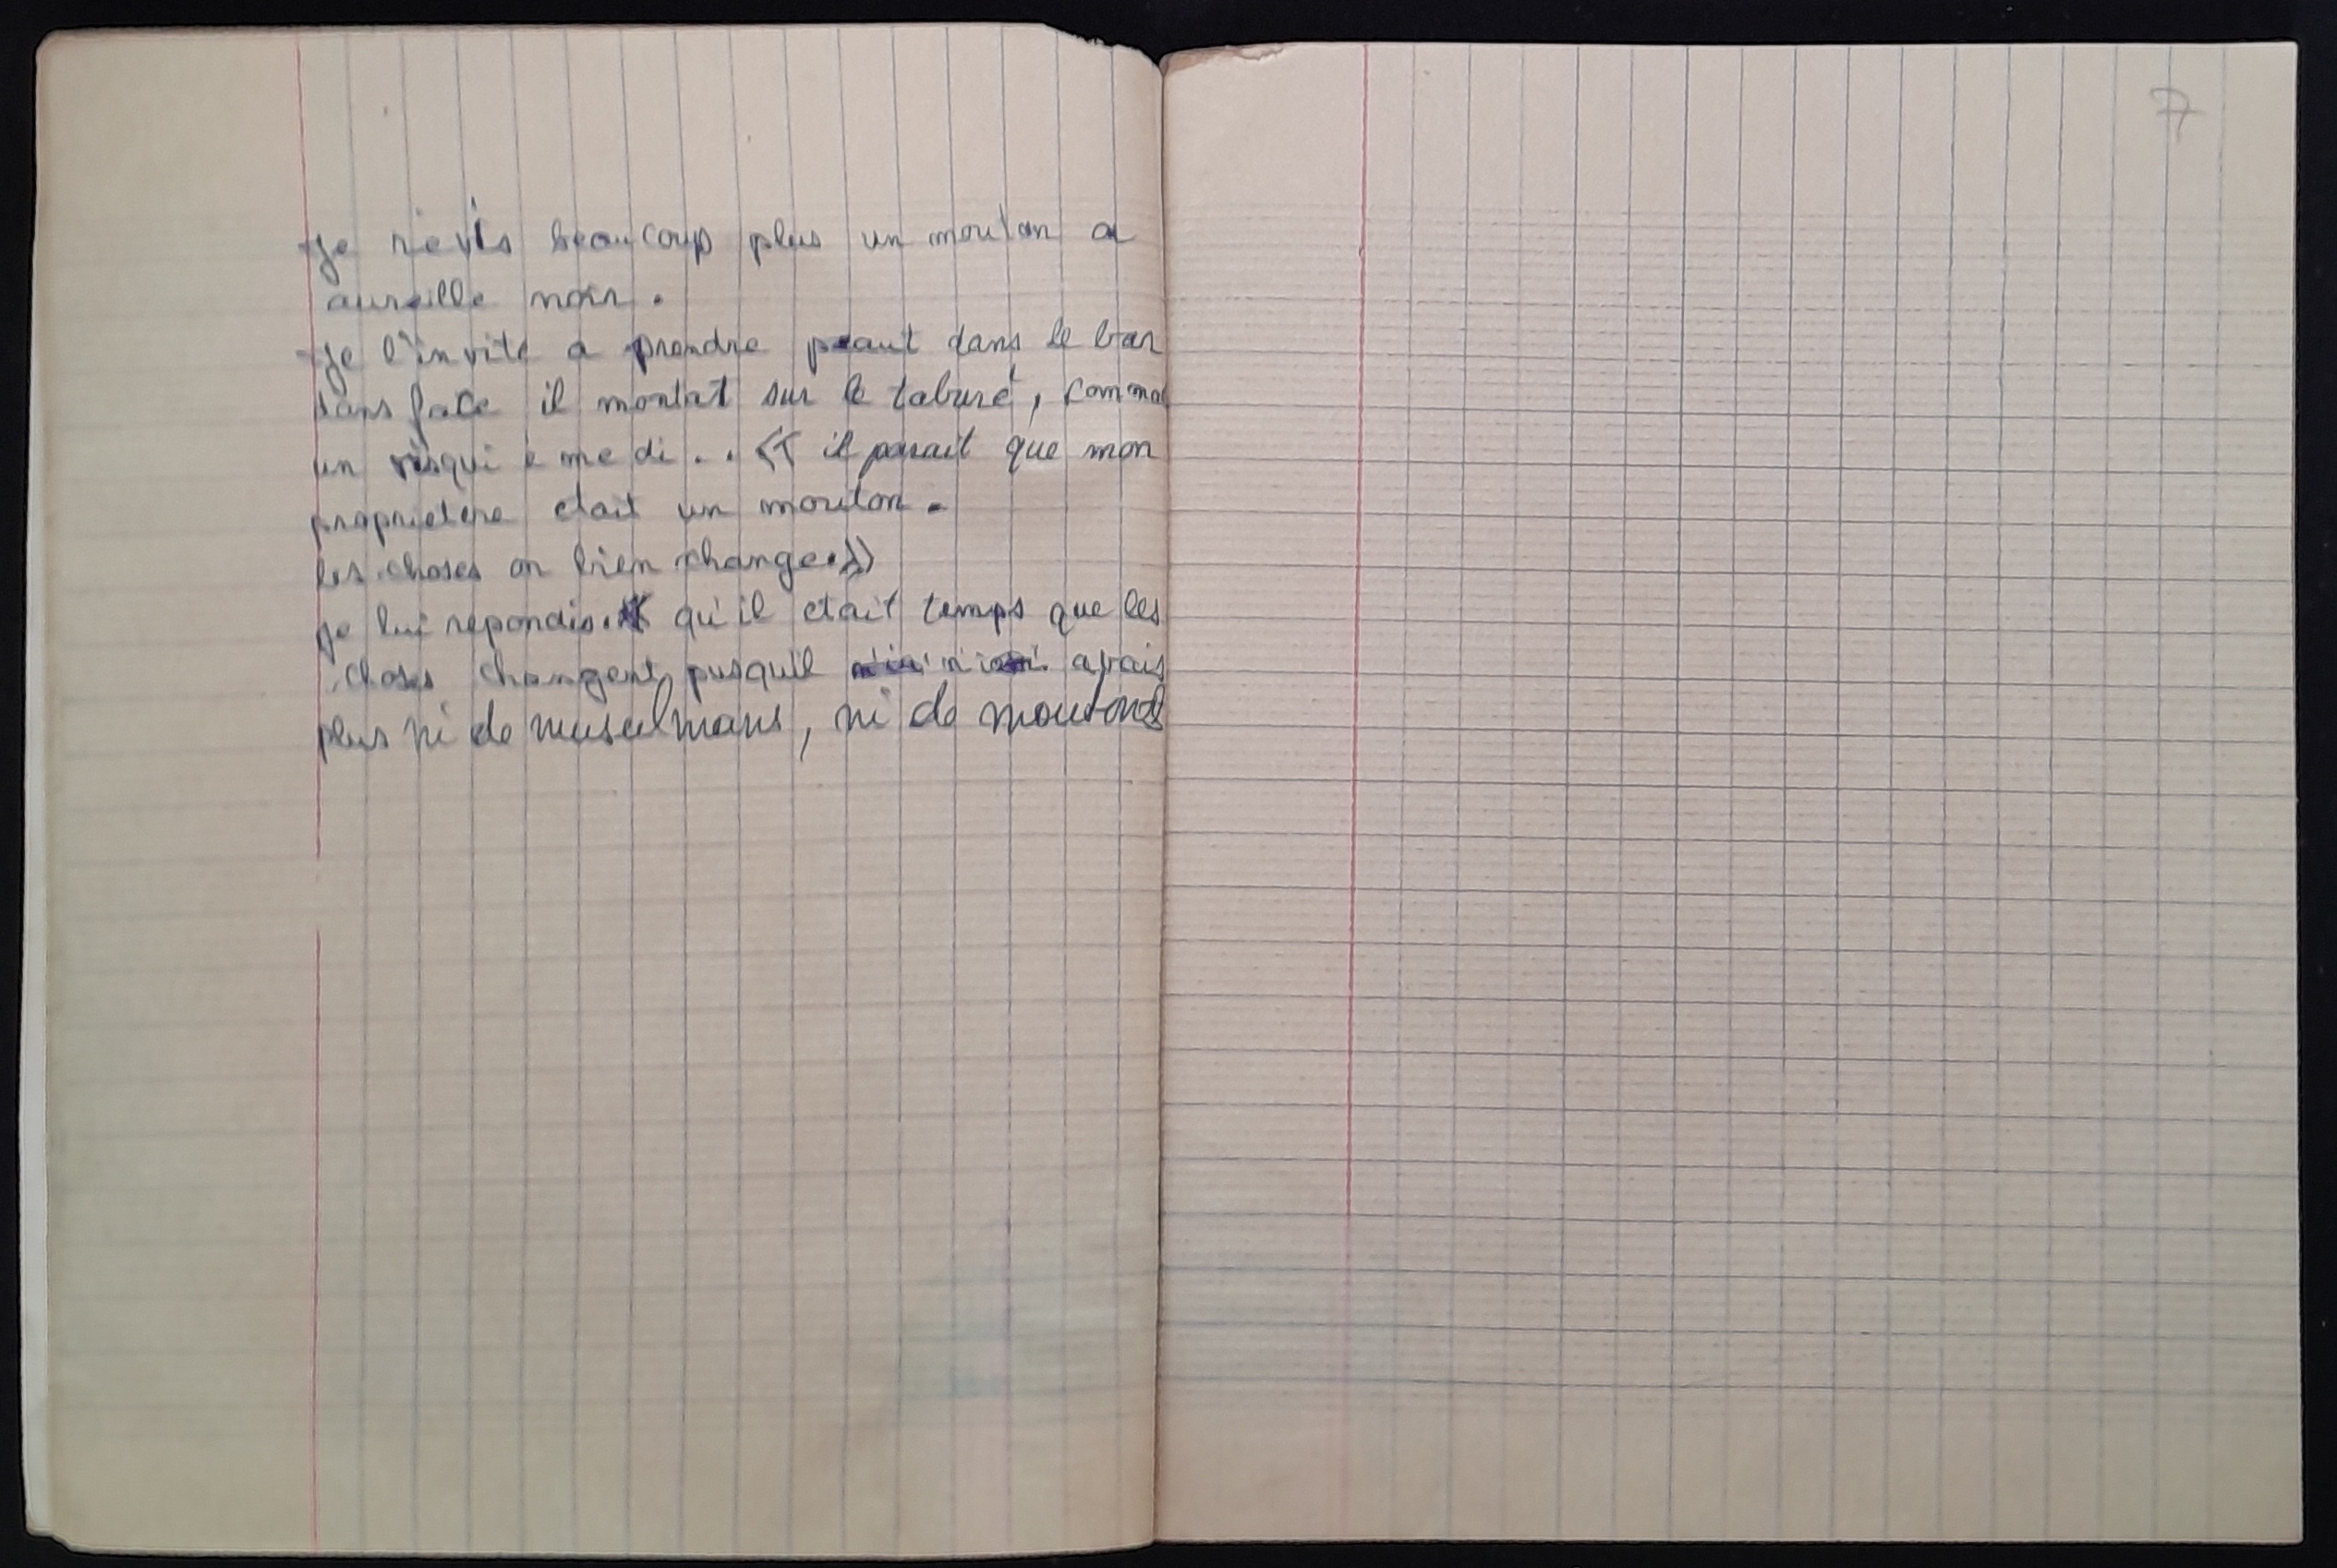 je révis beaucoup plus un mouton a
aureille noir.
je l'invite a prendre dans le bar
dans face il montat sur le taburé, comma
un visqui é me di.. « il parait que mon
proprietere etait un mouton.
les choses on bien change.»
je lui repondis. qu'il etait temps que les
choses changent pusquil avais
plus ni de musulmans, ni de moutons
7